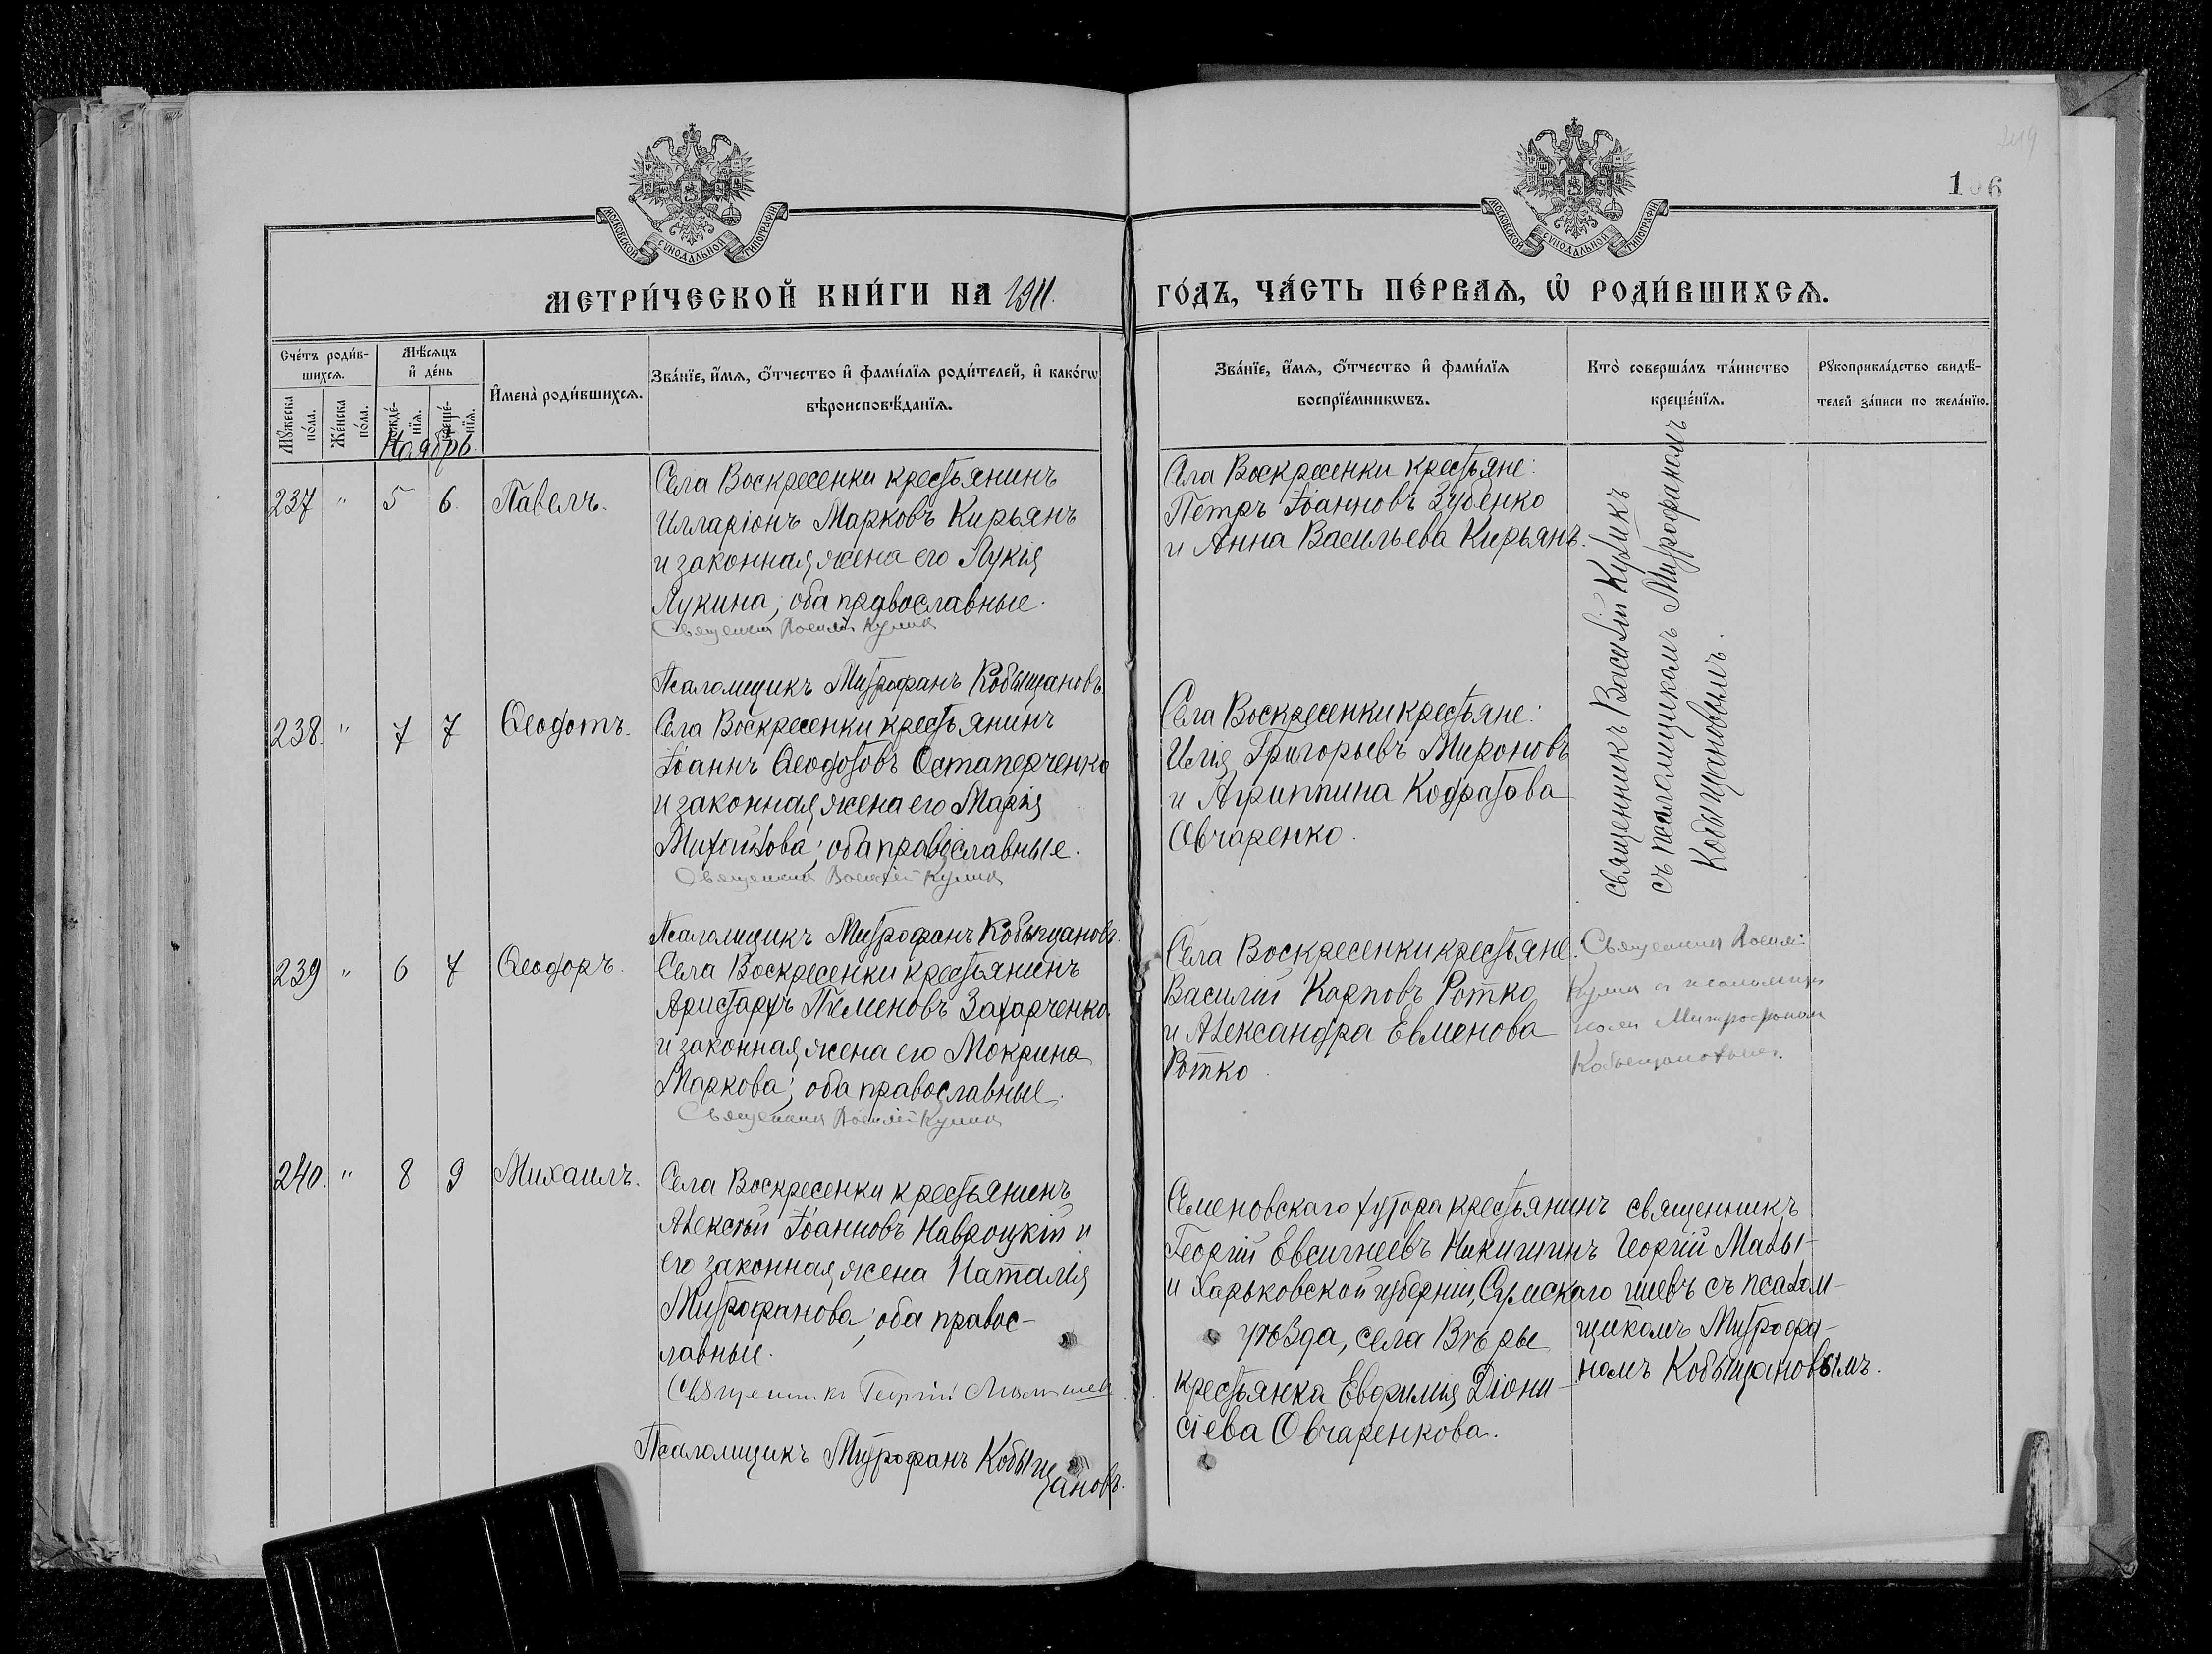 219
106
МОСКОВСКОЙ СѴНОДАЛЬНОЙ ТИПОГРАФІИ
МОСКОВСКОЙ СѴНОДАЛЬНОЙ ТИПОГРАФІИ
МЕТРИ́ЧЕСКОЙ КНИ́ГИ НА 1911.
ГО́ДЪ, ЧА́СТЬ ПЕ́РВАѦ, Ѡ҆ РОДИ́ВШИХСѦ.
Сче́тъ роди́в-
шихсѧ.
Мꙋ́жеска по́ла.
Же́нска по́ла.
Мѣ́сѧцъ
и҆ де́нь
рожде́-нїѧ.
креще́-нїѧ.
И҆мена̀ роди́вшихсѧ.
Зва́нїе, и҆́мѧ, ѻ҆́тчество и҆ фами́лїѧ роди́телей, и҆ како́гѡ
вѣроисповѣ́данїѧ.
Зва́нїе, и҆́мѧ, ѻ҆́тчество и҆ фами́лїѧ
воспрїе́мникѡвъ.
Кто̀ соверша́лъ та́инство
креще́нїѧ.
Рꙋкоприкла́дство свидѣ́-
телей за́писи по жела́нїю.
Ноябрь
237 " 5 6. Павелъ.
Села Воскресенки крестьянинъ
Илларіонъ Марковъ Кирьянъ
и законная жена его Лукія
Лукина; оба православные.
Священник Василій Кулик
Псаломщикъ Митрофанъ Кобыщановъ.
Села Воскресенки крестьяне:
Петръ Іоанновъ Зубенко
и Анна Васильева Кирьянъ.
священникъ Василій Куликъ
съ псаломщикомъ Митрофаномъ
Кобыщановымъ.
238. " 7 7 Ѳеодотъ.
Села Воскресенки крестьянинъ
Іоаннъ Ѳеодотовъ Остаперченко
и законная жена его Марія
Михаилова; оба православные.
Священник Василій Кулик
Псаломщикъ Митрофанъ Кобыщановъ.
Села Воскресенки крестьяне:
Илія Григорьевъ Мироновъ
и Агриппина Кодратова
Овчаренко.
239 " 6 7 Ѳеодоръ.
Села Воскресенки крестьянинъ
Аристархъ Пименовъ Захарченко
и законная жена его Мокрина
Маркова; оба православные.
Священник Василій Кулик
Села Воскресенки крестьяне:
Василій Карповъ Ротко
и Александра Евменова
Ротко.
Священник Василій
Кулик с псаломщи
ком Митрофаном
Кобыщановым.
240. " 8 9 Михаилъ.
Села Воскресенки крестьянинъ
Алексѣй Іоанновъ Навроцкій и
его законная жена Наталія
Митрофанова; оба правос-
лавные.
Священникъ Георгій Малышевъ
Псаломщикъ Митрофанъ Кобыщановъ.
Семеновскаго хутора крестьянинъ
Георгій Евсигнеевъ Никишинъ
и Харьковской губерніи, Сумскаго
уѣзда, села Вѣры
крестьянка Евфимія Діони-
сіева Овчаренкова.
священникъ
Георгій Малы-
шевъ съ псалом-
щикомъ Митрофа-
номъ Кобыщановымъ.